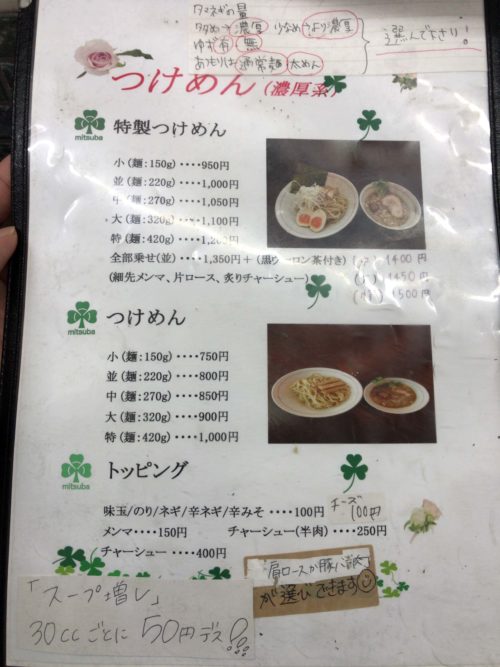 タマネギの量
多め→濃厚 少なめ→より濃厚
ゆず 有 無
あもりは 通常麺 太めん
選んで下さり!
つけめん(濃厚系)
mitsuba
特製つけめん
小(麺:150g)････950円
並(麺:220g)････1,000円
中(麺:270g)････1,050円
大(麺:320g)････1,100円
特(麺:420g)････1,200円
全部乗せ(並)････1,350円+(黒ウーロン茶付き)
(中) 1400円
(細先メンマ、片ロース、炙りチャーシュー)
(大) 1450
(特) 1500円
mitsuba
つけめん
小(麺:150g)････750円
並(麺:220g)････800円
中(麺:270g)････850円
大(麺:320g)････900円
特(麺:420g)････1,000円
mitsuba
トッピング
味玉/のり/ネギ/辛ネギ/辛みそ････100円
チーズ
100円
メンマ････150円 チャーシュー(半肉)････250円
チャーシュー････400円
肩ロースか豚バラ肉
が選びできます
「スープ増し」
30ccごとに50円デス!!!